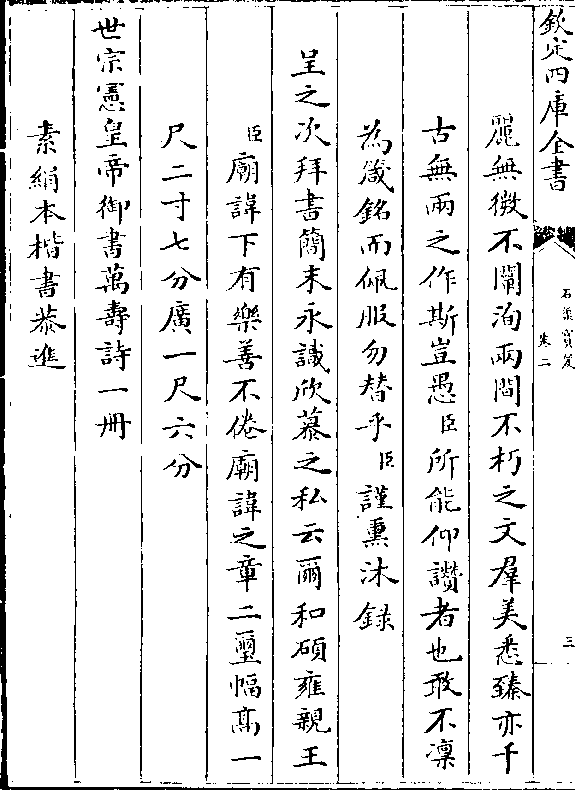 欽定四庫全書
石渠寶笈
卷二
三
麗無微不闡洵兩間不朽之文羣美悉臻亦千
古無兩之作斯豈愚臣所能仰讚者也敢不凜
為箴銘而佩服勿替乎臣謹熏沐錄
呈之次拜書簡末永識欣慕之私云爾和碩雍親王
臣廟諱下有樂善不倦廟諱之章二璽幅髙一
尺二寸七分廣一尺六分
世宗憲皇帝御書萬壽詩一冊
素絹本楷書恭進